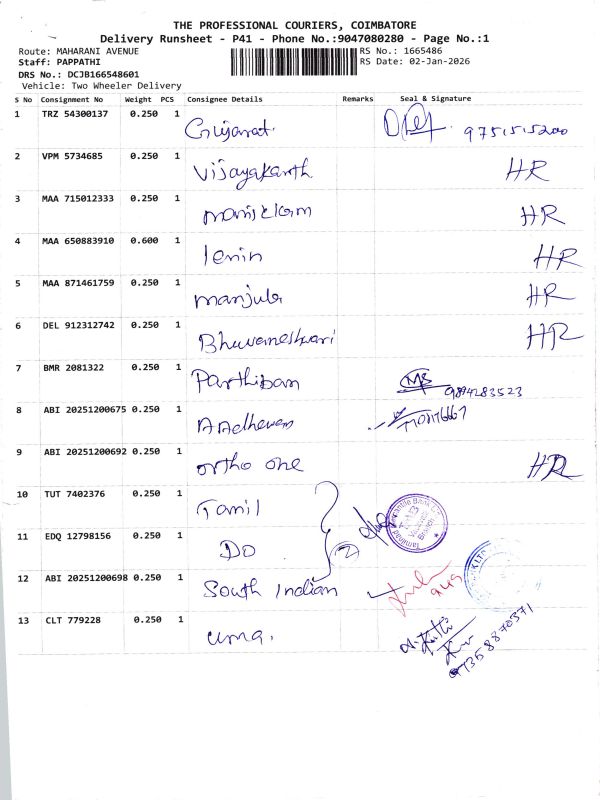 THE PROFESSIONAL COURIERS, COIMBATORE
Delivery Runsheet - P41 - Phone No.:9047080280 - Page No.:1
Route: MAHARANI AVENUE
RS No.: 1665486
Staff: PAPPATHI
RS Date: 02-Jan-2026
DRS No.: DCJB166548601
Vehicle: Two Wheeler Delivery
S No Consignment No Weight PCS Consignee Details Remarks Seal & Signature
1 TRZ 54300137 0.250 1 Gujarat.
2 VPM 5734685 0.250 1 Vijayakanth HR
3 MAA 715012333 0.250 1 HR
4 MAA 650883910 0.600 1 lenin HR
5 MAA 871461759 0.250 1 manjula HR
6 DEL 912312742 0.250 1 Bhuvaneshwari HR
7 BMR 2081322 0.250 1 Parthiban MS 9894283523
8 ABI 20251200675 0.250 1
9 ABI 20251200692 0.250 1 ortho one HR
10 TUT 7402376 0.250 1 Tamil
11 EDQ 12798156 0.250 1 Do 2
12 ABI 20251200698 0.250 1 South Indian
13 CLT 779228 0.250 1 uma.